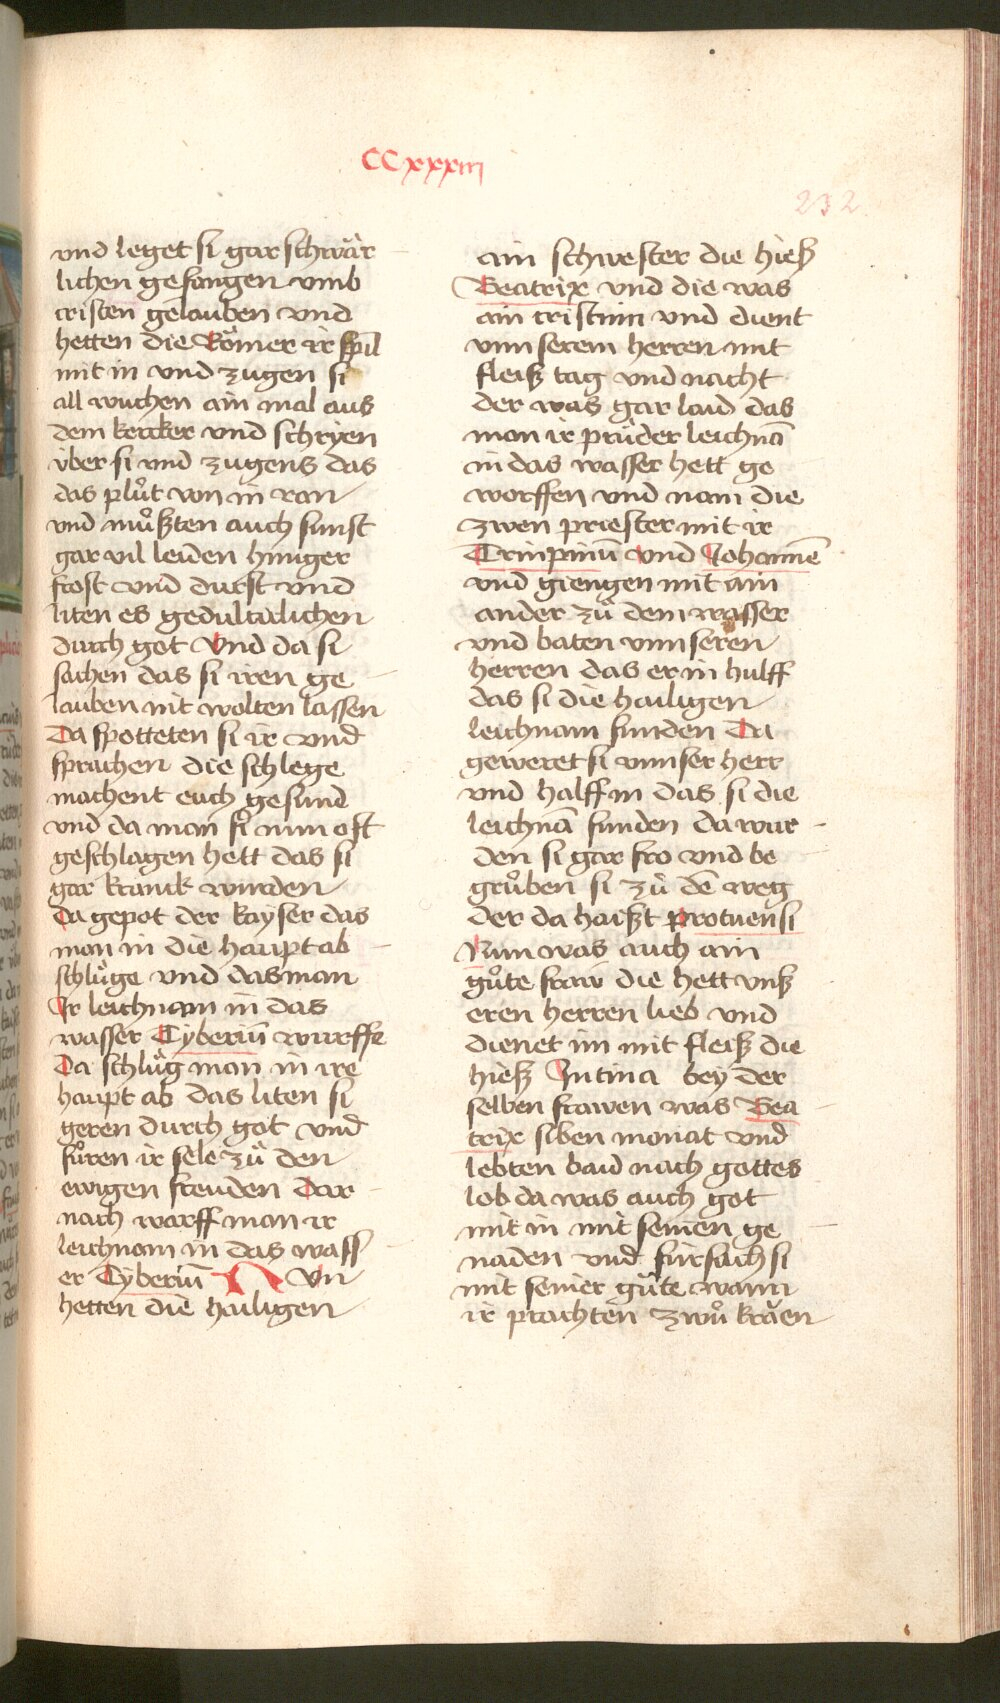 CCxxxiii
232
und leget si gar schwär
lichen gefangen umb
cristen gelauben und
hetten die Römer ir spil
mit in und zugen si
all wuchen ain mal aus
dem kercker und schryen
über si und zugens das
das plůt von in ran
und můsten auch sunst
gar vil leiden hunger
frost und durst und
liten es gedultiklichen
durch got Und da si
sachen das si iren ge
lauben nit wolten lassen
Da spotteten si ir und
sprachen die schlege
machent euch gesund
und da man si nun oft
geschlagen hett das si
gar kranck wurden
Da gepot der kayser das
man in die haupt ab
schlůge und das man
Ir leichnam in das
wasser Tyberiū wurffe
Da schlůg man in ire
haupt ab das liten si
geren durch got und
fůren ir sele zů den
ewigen freuden Dar
nach warff man ir
leichnam in das wass
er Tyberiū Nun
hetten die hailigen
ain schwester die hieß
Beatrix und die was
ain cristinn und dient
unnserem herren mit
fleiß tag und nacht
der was gar laid das
man ir prüder leichnā
in das wasser hett ge
worffen und nam die
zwen priester mit ir
Crinpinū und Johannē
und giengen mit ain
ander zů dem wasser
und baten unnseren
herren das er in hulff
das si die hailigen
leichnam funden Da
geweret si unnser herr
und halff in das si die
leichnā funden da wur
den si gar fro und be
grůben si zů dē weg
der da haißt protuensi
Nun was auch ain
gůte fraw die hett unß
eren herren lieb und
dienet im mit fleiß die
hieß Intina bey der
selben frawen was Bea
trix siben monat und
lebten baid nach gottes
lob da was auch got
mit in mit seinen ge
naden und fürsach si
mit seiner güte wann
ir prachten zwů kräen